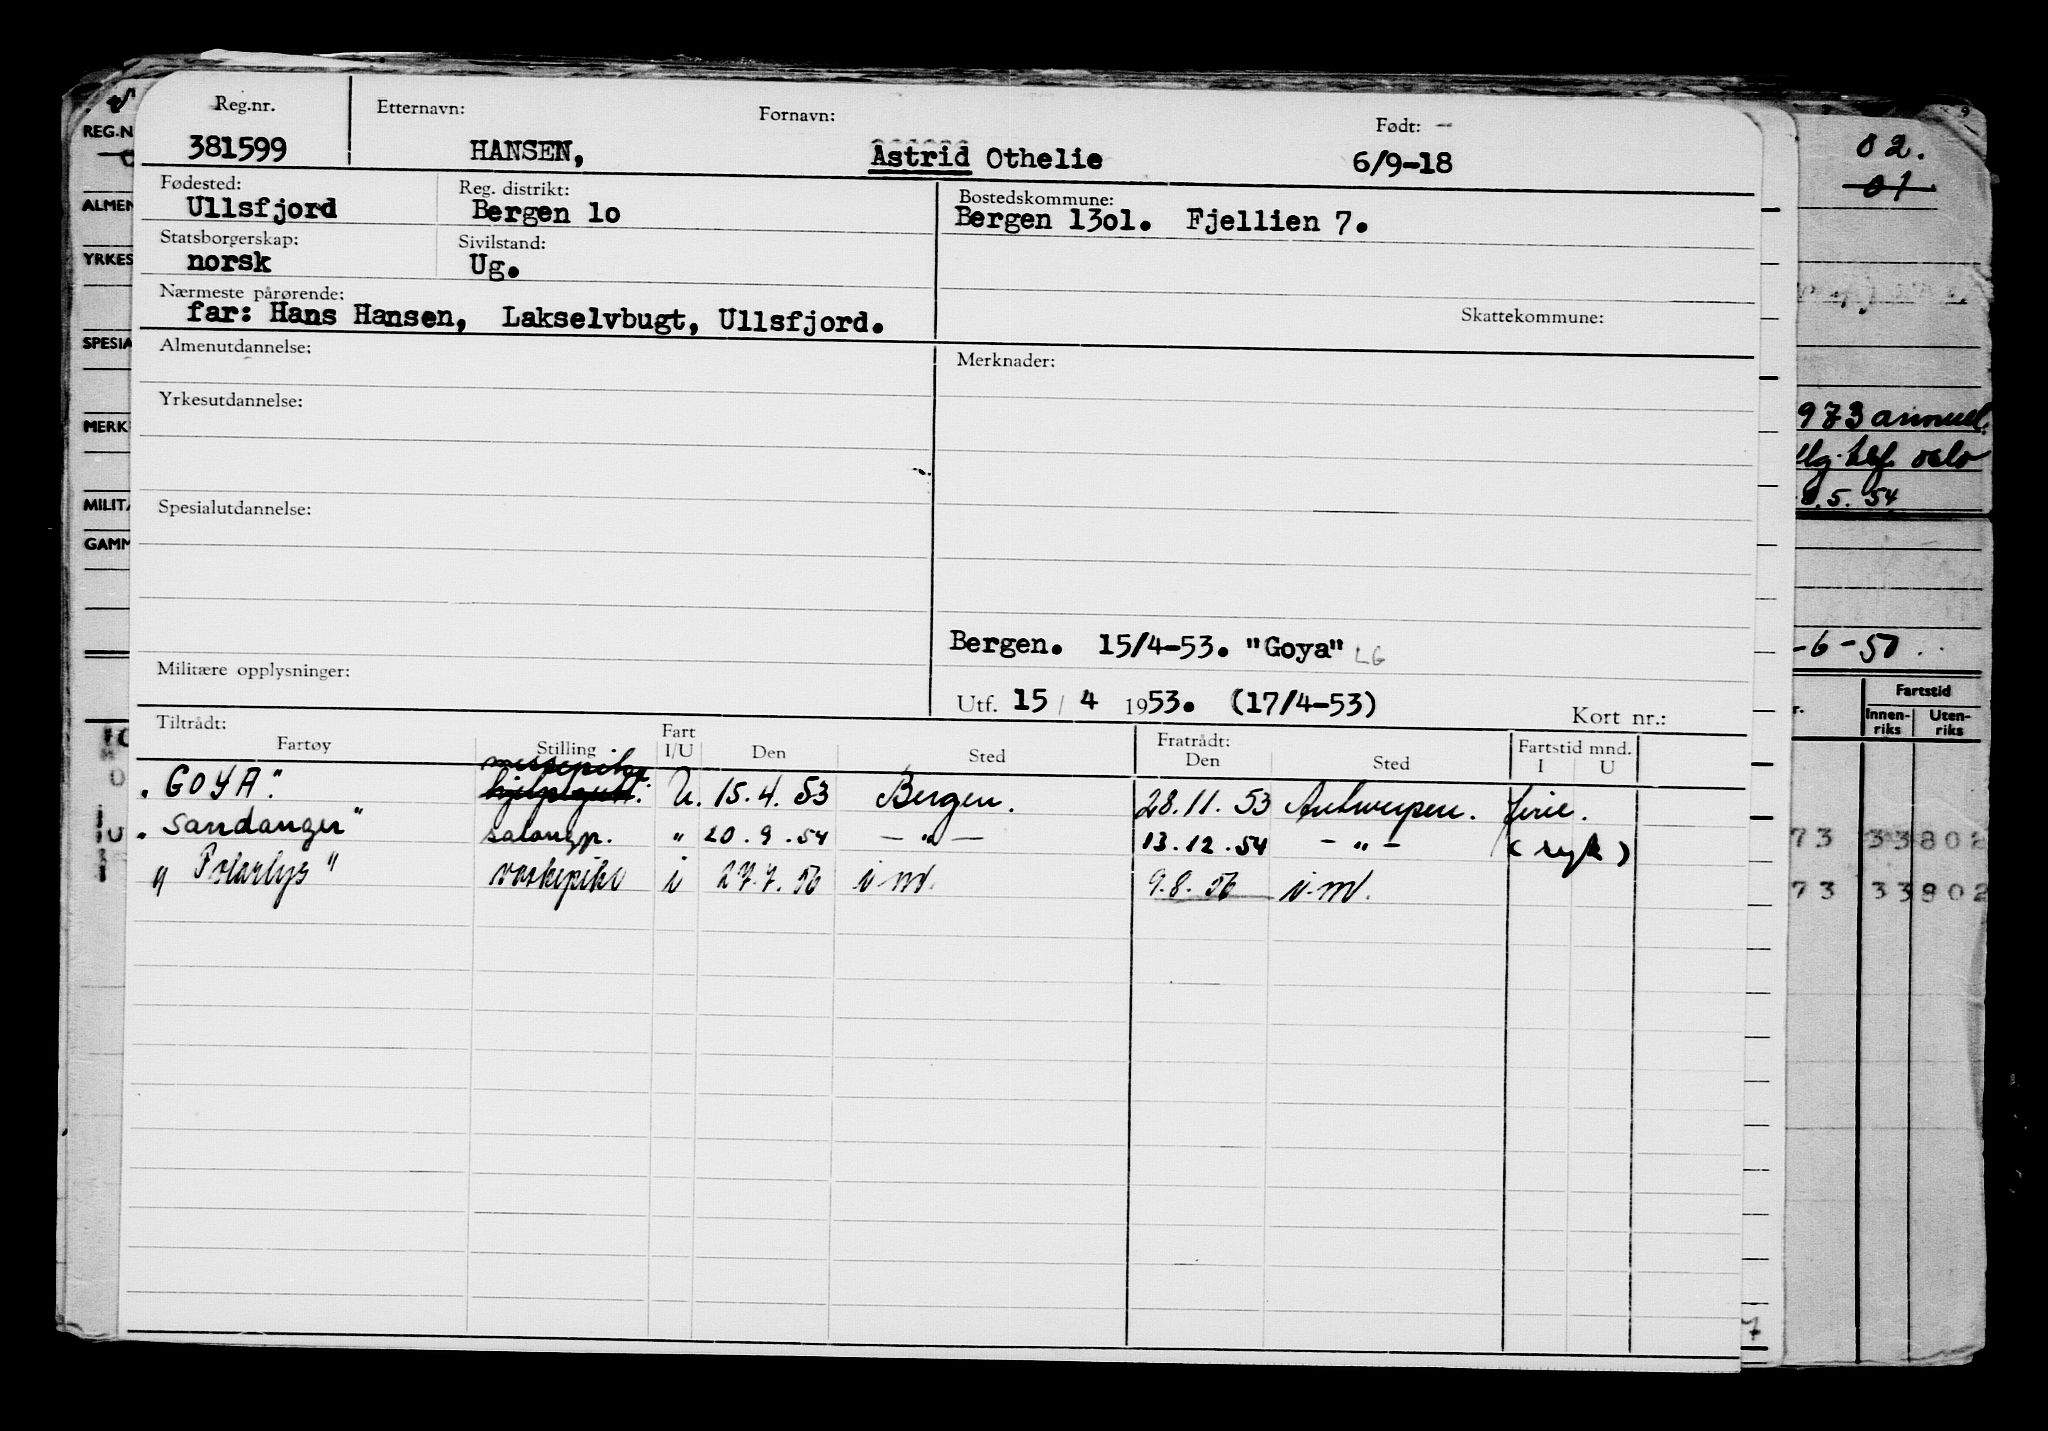 Reg.nr. Etternavn: Fornavn: Født:
381599 HANSEN, Astrid Othelie 6/9-18
Fødested: Reg. distrikt: Bostedskommune:
Ullsfjord Bergen lo Bergen 13ol. Fjellien 7.
Statsborgerskap: Sivilstand:
norsk Ug.
Nærmeste pårørende: Skattekommune:
far: Hans Hansen, Lakselvbugt, Ullsfjord.
Almenutdannelse: Merknader:
Yrkesutdannelse:
Spesialutdannelse:
Bergen. 15/4-53. "Goya" LG
Militære opplysninger:
Utf. 15 / 4 1953. (17/4-53) Kort nr.:
Tiltrådt: Fart Fratrådt: Fartstid mnd.
Fartøy Stilling I/U Den Sted Den Sted I U
messepike
"GOYA" U. 15.4.53 Bergen. 28.11.53 Antwerpen. ferie.
"Sandanger" salongp. " 20.9.54 -"- 13.12.54 -"- (syk)
"Polarlys" vaskepike i 27.7.56 i.m. 9.8.56 i.m.
REG.N
ALMEN
YRKES
SPESIA
MERK
MILITÆ
GAMM
02.
01
973 annuel.
oslo
5.54
-6-50
Fartstid
Innen-riks Uten-riks
73 33802
73 33802